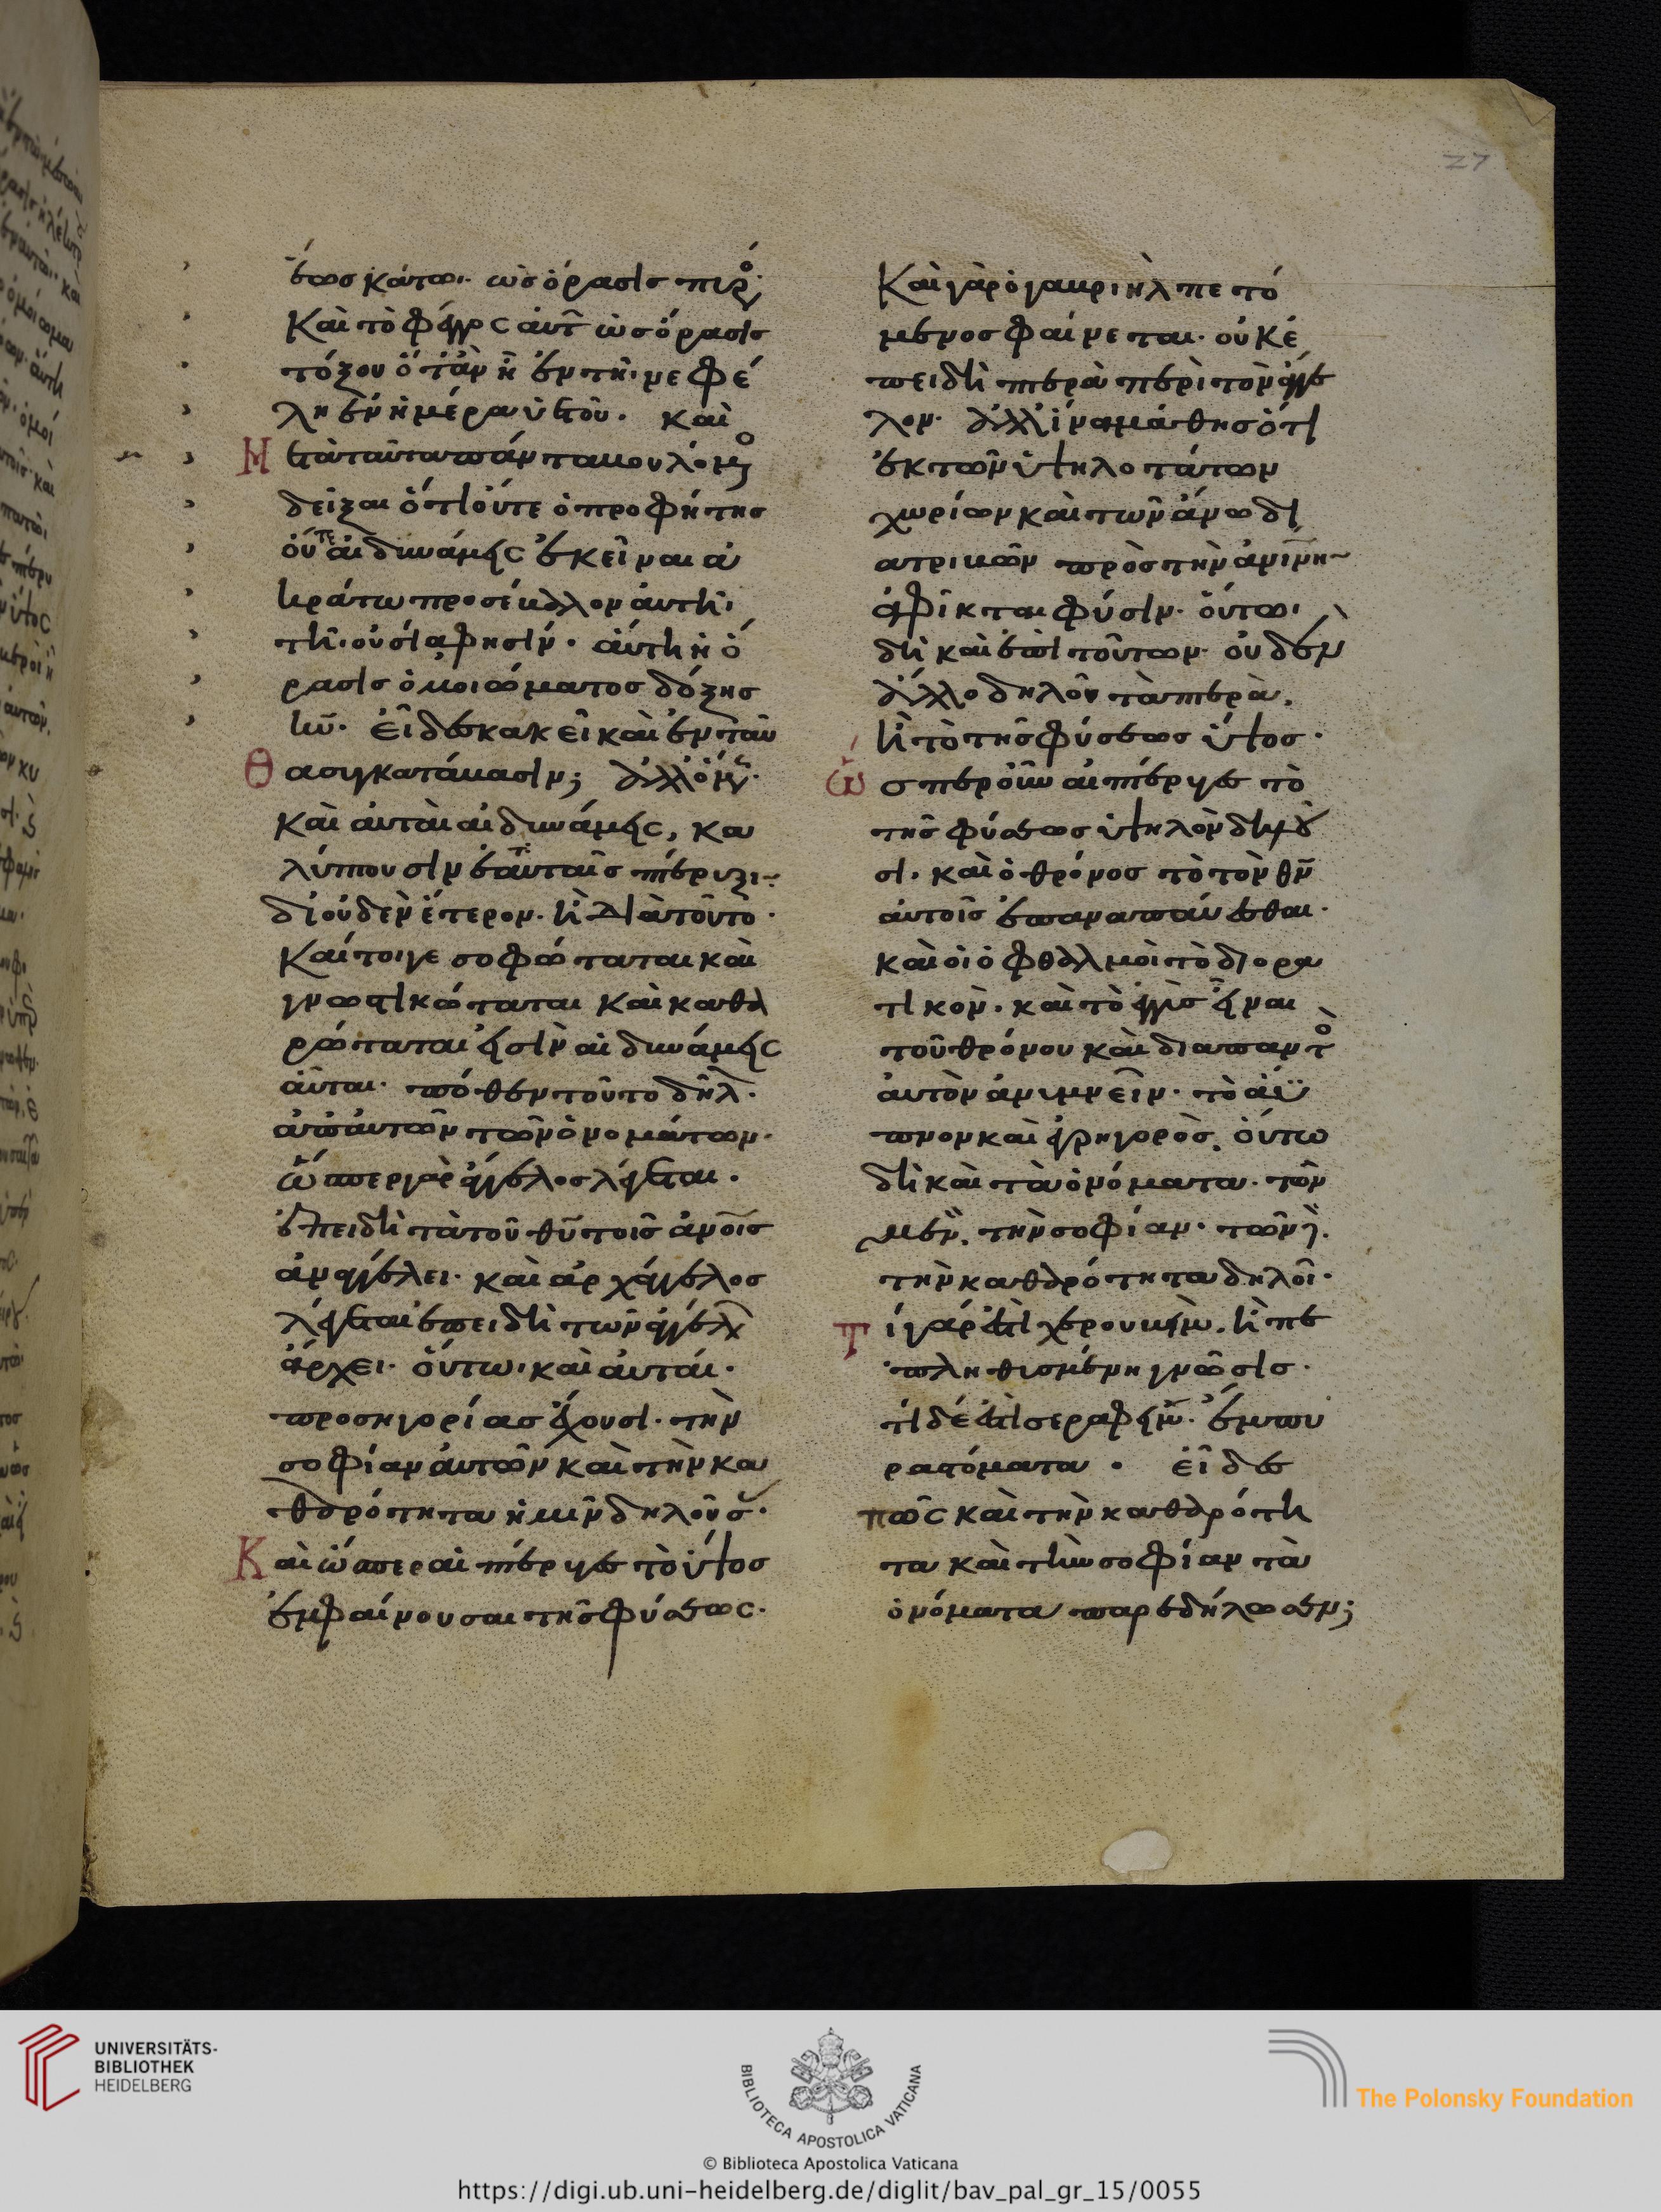 27
έως κάτω· ὡς ὅρασις πυρό·
Καὶ τὸ φέγγος αὐτ ὡς ὅρασις
τόξου ὅταν ἦ ἐν τῆ νεφέ
λη ἐν ἡμέρα ὑετοῦ. καὶ
Μετὰ ταῦτα πάντα βουλόμο
δεῖξαι ὅτι οὔτε ὁ προφήτης
οὔτε αἱ δυνάμεις ἐκεῖναι ἀ
κράτω προσέβαλλον αὐτῆ
τῆ οὐσία φησίν· αὕτη ἡ ὅ
ρασις ὁμοιώματος δόξης
κυ. εἶδες κακεῖ καὶ ἐνταῦ
Θα συγκατάβασιν; ἀλλ' ὅμως·
Καὶ αὐταὶ αἱ δυνάμεις, κα
λύπτουσιν ἑαυταῖς πτέρυξι·
δι' οὐδὲν ἕτερον. ἢ διὰ τοῦτο·
Καίτοιγε σοφώταται καὶ
γνωστικώταται καὶ καθα
ρώταται εἰσὶν αἱ δυνάμεις
αὗται· πόθεν τοῦτο δῆλ.
ἀπ' αὐτῶν τῶν ὀνομάτων.
ὥσπερ γὰρ ἄγγελος λέγεται.
ἐπειδὴ τὰ τοῦ θυ τοῖς ἀνοις
ἀναγγέλει· καὶ ἀρχάγγελος
λέγεται ἐπειδὴ τῶν ἀγγέλων
ἄρχει. οὕτω καὶ αὐταί.
προσηγορίας ἔχουσι. τὴν
σοφίαν αὐτῶν καὶ τὴν κα
θαρότητα ἡμῖν δηλούσ·
Καὶ ὥσπερ αἱ πτέρυγες τὸ ὕψος
ἐμφαίνουσαι τῆς φύσεως.
Καὶ γὰρ ὁ γαβριὴλ πετό
μενος φαίνεται· οὐκ ἐ
πειδὴ πτερὰ περὶ τὸν ἄγγε
λον· ἀλλ' ἵνα μάθης ὅτι
ἐκ τῶν ὑψηλοτάτων
χωρίων καὶ τῶν ἄνω δι
ατριβῶν πρὸς τὴν ἀνινη
ἀφῖκται φύσιν. οὕτω
δὴ καὶ ἐπὶ τούτων· οὐδὲν
ἄλλο δηλοῦν τὰ πτερὰ,
ἢ τὸ τῆς φύσεως ὕψος.
Ὥσπερ οὖν αἱ πτέρυγες τὸ
τῆς φύσεως ὑψηλὸν δηλοῦ
σι. καὶ ὁ θρόνος τὸ τὸν θν
αὐτοῖς ἐπαναπαύεσθαι.
καὶ οἱ ὀφθαλμοὶ τὸ διορα
τικόν. καὶ τὸ ἐγγὺς εἶναι
τοῦ θρόνου καὶ διαπαντὸ
αὐτὸν ἀνυμνεῖν. τὸ ἄϋ
πνον καὶ ἐγρηγορός. οὕτω
δὴ καὶ τὰ ὀνόματα. τῶν
μὲν, τὴν σοφίαν. τῶν δὲ.
τὴν καθαρότητα δηλοῖ.
Τί γάρ ἐστι χερουβὶμ. ἢ πε
πληθυσμένη γνῶσις.
τί δέ ἐστι σεραφεὶμ. ἔμπυ
ρα στόματα. εἶδες
πῶς καὶ τὴν καθαρότη
τα καὶ τὴν σοφίαν τὰ
ὀνόματα παρεδήλωσεν;
UNIVERSITÄTS-
BIBLIOTHEK
HEIDELBERG
BIBLIOTECA APOSTOLICA VATICANA
The Polonsky Foundation
© Biblioteca Apostolica Vaticana
https://digi.ub.uni-heidelberg.de/diglit/bav_pal_gr_15/0055